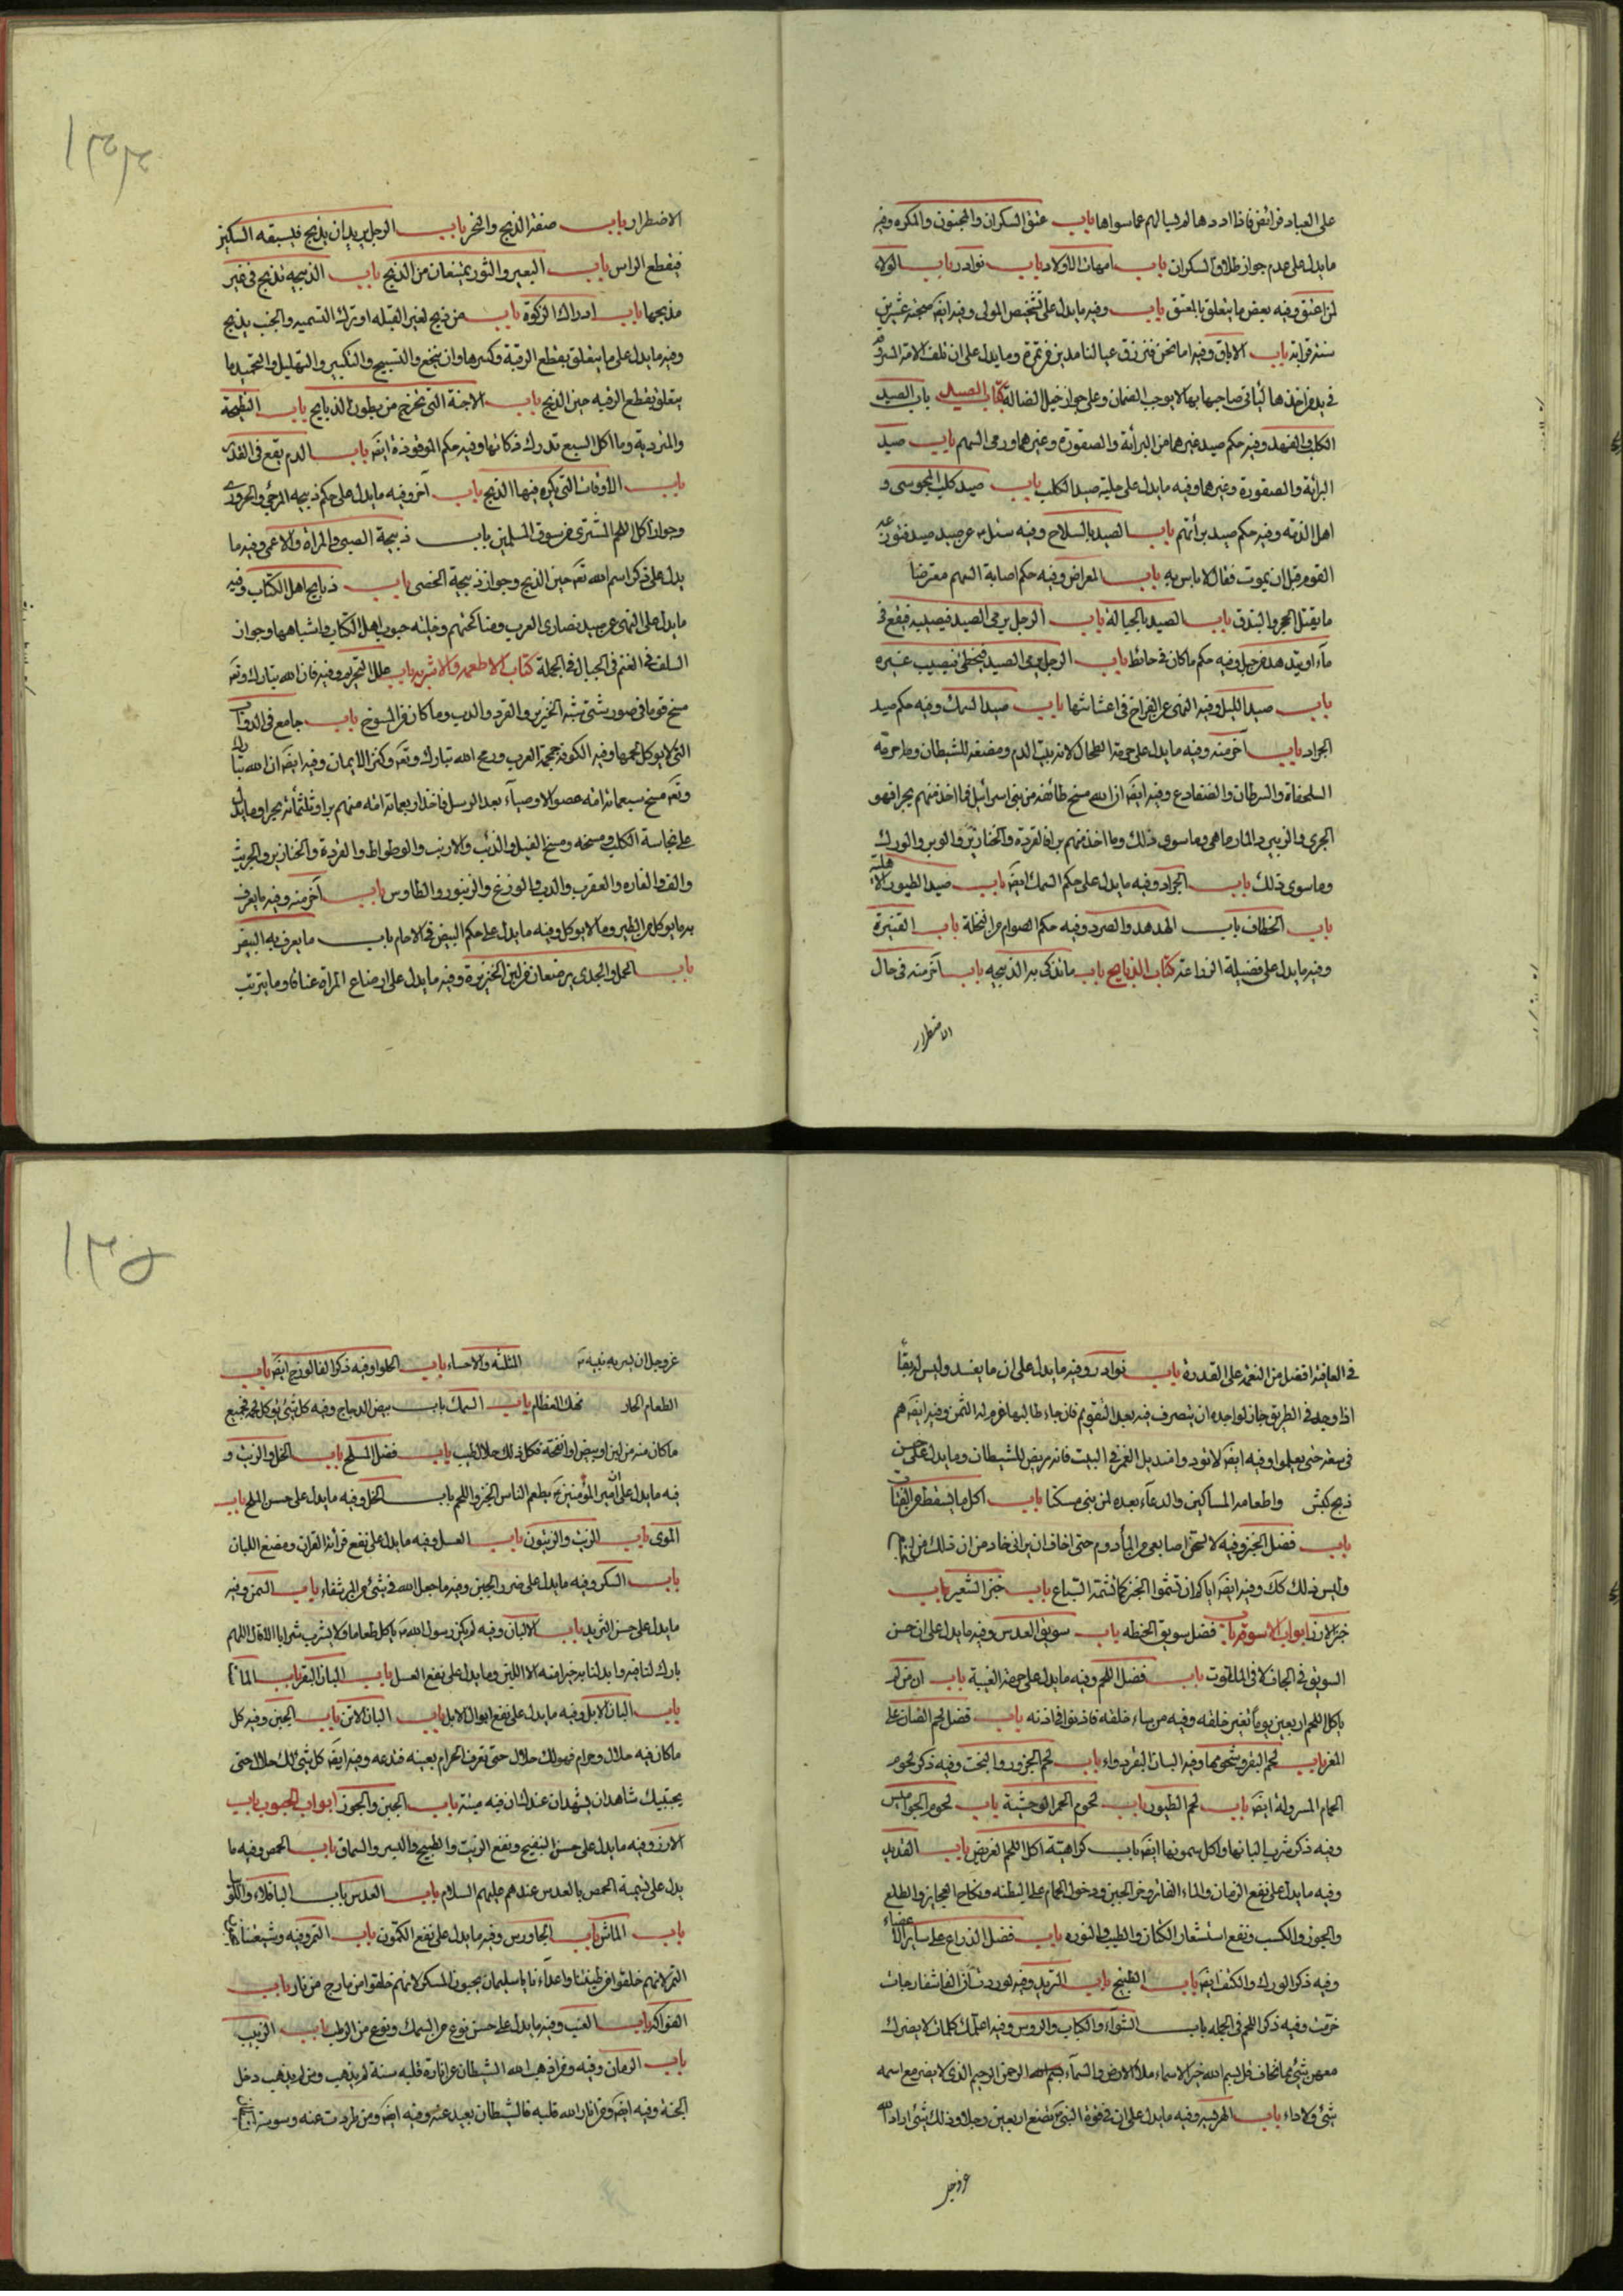 على العباد فرائض فاذا ادوها لم يسالهم عما سواها باب عتق السكران والمجنون والمكره وفيه
ما يدل على عدم جواز طلاق السكران باب امهات الاولاد باب نوادر باب الولاء
لمن اعتق وفيه بعض ما يتعلق بالعتق باب وفيه ما يدل على تشخيص المولى وفيه ايضَ
باب الاباق وفيه اما نحن فنرزق عيالنا مدين من تمرة وما يدل على ان
في يد من اخذها لياتي صاحبها بها لا يوجب الضمان وعلى جواز الضالة كتاب الصيد باب الصيد
الكلب والفهد وفيه حكم صيد غيرهما من البزاة والصقورة وغيرهما ورمى السهم باب صيد
البزاة والصقورة وغيرهما وفيه ما يدل على حلية صيد الكلب باب صيد كلب المجوسى و
اهل الذمة وفيه حكم صيد بزاتهم باب الصيد بالسلاح وفيه سئل عن صيد صيد
القوم قبل ان يموت فقال لا باس به باب المعراض وفيه حكم اصابة السهم معترضا
ما يقتل الحجر والبندق باب الصيد بالحبالة باب الرجل يرمى الصيد فيصيبه فيقع في
ماء او يتدهده من جبل وفيه حكم ما كان في حائط باب الرجل يرمى الصيد فيخطى ويصيب غيره
باب صيد الليل وفيه النهى عن الفراخ في اعشاشها باب صيد السمك وفيه حكم صيد
الجراد باب آخر منه وفيه ما يدل على حرمة الطحال لانه بيت الدم ومضغة للشيطان وما حرمة
السلحفاة والسرطان والضفادع وفيه ايضَ ان الله مسخ طائفة من بنى اسرائيل فما اخذ منهم بحرا فهو
الجرى والزمير والمارماهى وما سوى ذلك وما اخذ منهم برا فالقردة والخنازير والوبر والورك
وما سوى ذلك باب الجراد وفيه ما يدل على حكم السمك ايضَ باب صيد الطيور الاهلية
باب الخطاف باب الهدهد والصرد وفيه حكم الصوام والنحلة باب القنبرة
وفيه ما يدل على فضيلة كتاب الذبايح باب ما تذكى به الذبيحه باب آخر منه في حال
الاضطرار
١٣٣٤
الاضطرار باب صفة الذبح والنحر باب الرجل يريد ان يذبح فيسبقه السكين
فيقطع الراس باب البعير والثور يمتنعان من الذبح باب الذبيحه تذبح في غير
مذبحها باب ادراك الذكوة باب من ذبح لغير القبله او ترك التسميه والجنب يذبح
وفيه ما يدل على ما يتعلق بقطع الرقبة وكسرها وان ينخع والتسبيح والتكبير والتهليل والتحميد وما
يتعلق بقطع الرقبه حين الذبح باب الاجنة التى تخرج من بطون الذبايح باب النطيحة
والمتردية وما اكل السبع تدرك ذكاتها وفيه حكم الموقوذة ايضَ باب الدم يقع في القدر
باب الاوقات التى يكره فيها الذبح باب آخر وفيه ما يدل على حكم ذبيحه المرجى والحرورى
وجواز اكل اللحم المشترى من سوق المسلمين باب ذبيحة الصبى والمراة والاعمى وفيه ما
يدل على ذكر اسم الله تعَ حين الذبح وجواز ذبيحة الخصى باب ذبايح اهل الكتاب وفيه
ما يدل على النهى عن صيد نصارى العرب ومناكحتهم وحليه حبوب اهل الكتاب واشباهها وجواز
السلف في الغنم في الجبال في الجملة كتاب الاطعمه والاشربه باب علل التحريم وفيه فان الله تبارك وتعَ
مسخ قوما في صور شتى شبه الخنزير والقرد والدب وما كان من المسوخ باب جامع في الدواب
التى لا يوكل لحمها وفيه الكوفة جمجمة العرب ورمح الله تبارك وتعَ وكنز الايمان وفيه ايضَ ان الله تبارك
وتعَ مسخ سبعمائة امة عصوا الاوصياء بعد الرسل فاخذ اربعمائة امة منهم برا وثلثمائة بحرا وما يدل
على نجاسة الكلب ومسخه ومسخ الفيل والذئب والارنب والوطواط والقردة والخنازير والجريث
والضب والفاره والعقرب والدب والوزغ والزنبور والطاوس باب آخر منه وفيه ما يعرف
به ما يوكل من الطير وما لا يوكل وفيه ما يدل على حكم البيض في الاجام باب ما يعرف به البيض
باب الحمل والجدى يرضعان من لبن الخنزيرة وفيه ما يدل على ارضاع المراة عناقا وما يترتب
في العافية افضل من النعمة على القدرة باب نوادر وفيه ما يدل على ان ما يفسد وليس له بقاء
اذا وجد في الطريق جاز لواجده ان يتصرف فيه بعد التقويم فان جاء طالبها غرم له الثمن وفيه ايضَ هم
في سعة حتى يعلموا وفيه ايضَ لا تؤووا منديل الغمر في البيت فانه مربض للشيطان وما يدل على حسن
ذبح كبش واطعامه المساكين والدعاء بعده لمن بنى مسكنا باب اكل ما يسقط من الفتات
باب فضل الخبز وفيه لالحس اصابعى من المادوم حتى اخاف ان يرانى خادمى ان ذلك من
وليس ذلك كك وفيه ايضَ اياكم ان تشموا الخبز كما تشمه السباع باب خبز الشعير باب
خبز الارز ابواب الاسوقه باب فضل سويق الحنطه باب سويق العدس وفيه ما يدل على ان حسن
السويق في الجاف لا في الملتوت باب فضل اللحم وفيه ما يدل على حرمة الغيبة باب ان من لم
ياكل اللحم اربعين يوما تغير خلقه وفيه من ساء خلقه فاذنوا في اذنه باب فضل لحم الضان على
المعز باب لحم البقر وشحومها وفيه البان البقر دواء باب لحم الجزور والبخت وفيه ذكر لحوم
الحمام المسرولة ايضَ باب لحم الطيور باب لحوم الحمر الوحشية باب لحوم الجواميس
وفيه ذكر شرب البانها واكل سمونها ايضَ باب كراهية اكل اللحم الغريض باب القديد
وفيه ما يدل على نفع الرمان والماء الفاتر وضر الجبن ودخول الحمام على البطنه ونكاح العجايز والطلع
والجوز والكسب ونفع استشعار الكتان والطيب والنوره باب فضل الذراع على سائر الاعضاء
وفيه ذكر الورك والكتف ايضَ باب الطبيخ باب الثريد وفيه لوددت ان الفاشفارجات
حرمت وفيه ذكر اللحم في الجمله باب الشواء والكباب والروس وفيه اعلمك كلمات لا يضرك
معهن شئ مما تخاف قل بسم الله خير الاسماء ملأ الارض والسماء الرحمن الرحيم الذى لا يضر مع اسمه
شئ ولا داء باب الهريسه وفيه ما يدل على ان في قوة النبى بضع اربعين رجلا وذلك شئ اراد الله
عز وجل
١٣٣٥
عز وجل ان يسر به نبيه المثلثه والاحساء باب الحلوا وفيه ذكر الفالوذج ايضَ باب
الطعام الحار نهك العظام باب السمك باب بيض الدجاج وفيه كل شئ يؤكل لحمه فجميع
ما كان منه من لبن او بيض او انفحة فكل ذلك حلال طيب باب فضل الملح باب الخل والزيت و
فيه ما يدل على ان امير المؤمنين يطعم الناس الخبز واللحم باب الخل وفيه ما يدل على حسن الملح باب
المرى باب الزيت والزيتون باب العسل وفيه ما يدل على نفع قرائة القرآن ومضغ اللبان
باب السكر وفيه ما يدل على ضرر الجبن وفيه ما جعل الله في شئ شفاء باب السمن وفيه
ما يدل على حسن الثريد باب الالبان وفيه لم يكن رسول الله ياكل طعاما ولا يشرب شرابا الا قال اللهم
بارك لنا فيه وابدلنا به خيرا منه الا اللبن وما يدل على نفع العسل باب البان البقر باب الماست
باب البان الابل وفيه ما يدل على نفع ابوال الابل باب البان الاتن باب الجبن وفيه كل
ما كان فيه حلال وحرام فهو لك حلال حتى تعرف الحرام بعينه فتدعه وفيه ايضَ كل شئ لك حلال حتى
يجيئك شاهدان يشهدان عندك ان فيه ميتة باب الجبن والجوز ابواب الحبوب باب
الارز وفيه ما يدل على حسن البنفسج ونفع الزيت والطبيخ والبسر والسماق باب الحمص وفيه ما
يدل على تسمية الحمص بالعدس عندهم عليهم السلام باب العدس باب الباقلاء واللوبيا
باب الماش باب الجاورس وفيه ما يدل على نفع الكمون باب التمر وفيه وشيعتنا
التمر لانهم خلقوا من طينتنا واعداءنا يا سليمان يحبون المسكر لانهم خلقوا من مارج من نار باب
الفواكه باب العنب وفيه ما يدل على حسن نوع من السمك ونوع من الرطب باب الزبيب
باب الرمان وفيه ومن اذهب الله الشيطان عن انارة قلبه سنة لم يذنب ومن لم يذنب دخل
الجنة وفيه ايضَ ومن انار الله قلبه فالشيطان بعيد عنه وفيه ايضَ ومن طردت عنه وسوسة